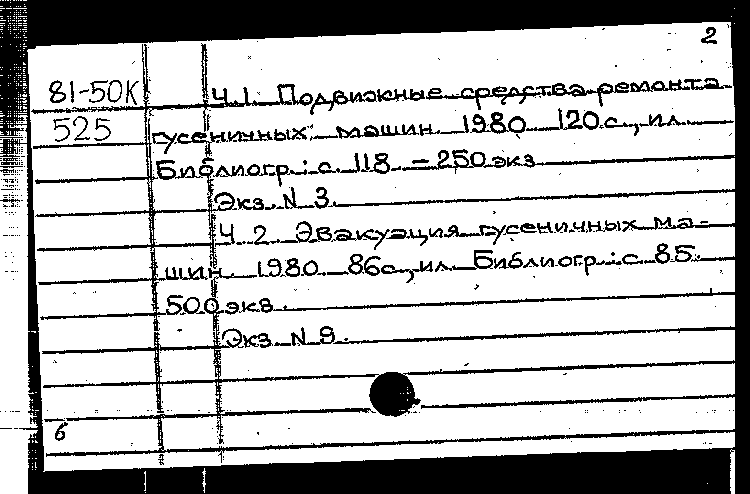 2
81-50К Ч.1. Подвижные средства ремонта
525 гусеничных машин. 1980 120с., ил.
Библиогр.: с. 118. - 250 экз
Экз. N 3.
Ч. 2. Эвакуация гусеничных ма-
шин. 1980. 86с., ил. Библиогр.: с. 85.
500 экз.
Экз. N 9.
6